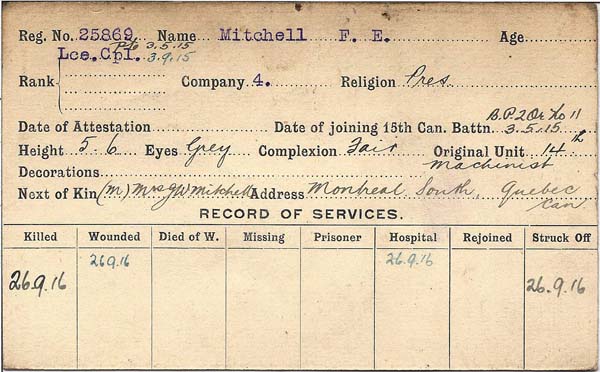 Reg. No. 25869 Name Mitchell F. E. Age
Pte 3.5.15
Lce.Cpl. 3.9.15
Rank Company 4. Religion Pres
B.P.2 Or. No 11
Date of Attestation Date of joining 15th Can. Battn. 3.5.15
Height 5-6 Eyes Grey Complexion Fair Original Unit 14th
Decorations Machinist
Next of Kin (M) Mrs J W Mitchell Address Montreal South, Quebec
Can
RECORD OF SERVICES.
Killed Wounded Died of W. Missing Prisoner Hospital Rejoined Struck Off
26.9.16 26.9.16
26.9.16 26.9.16